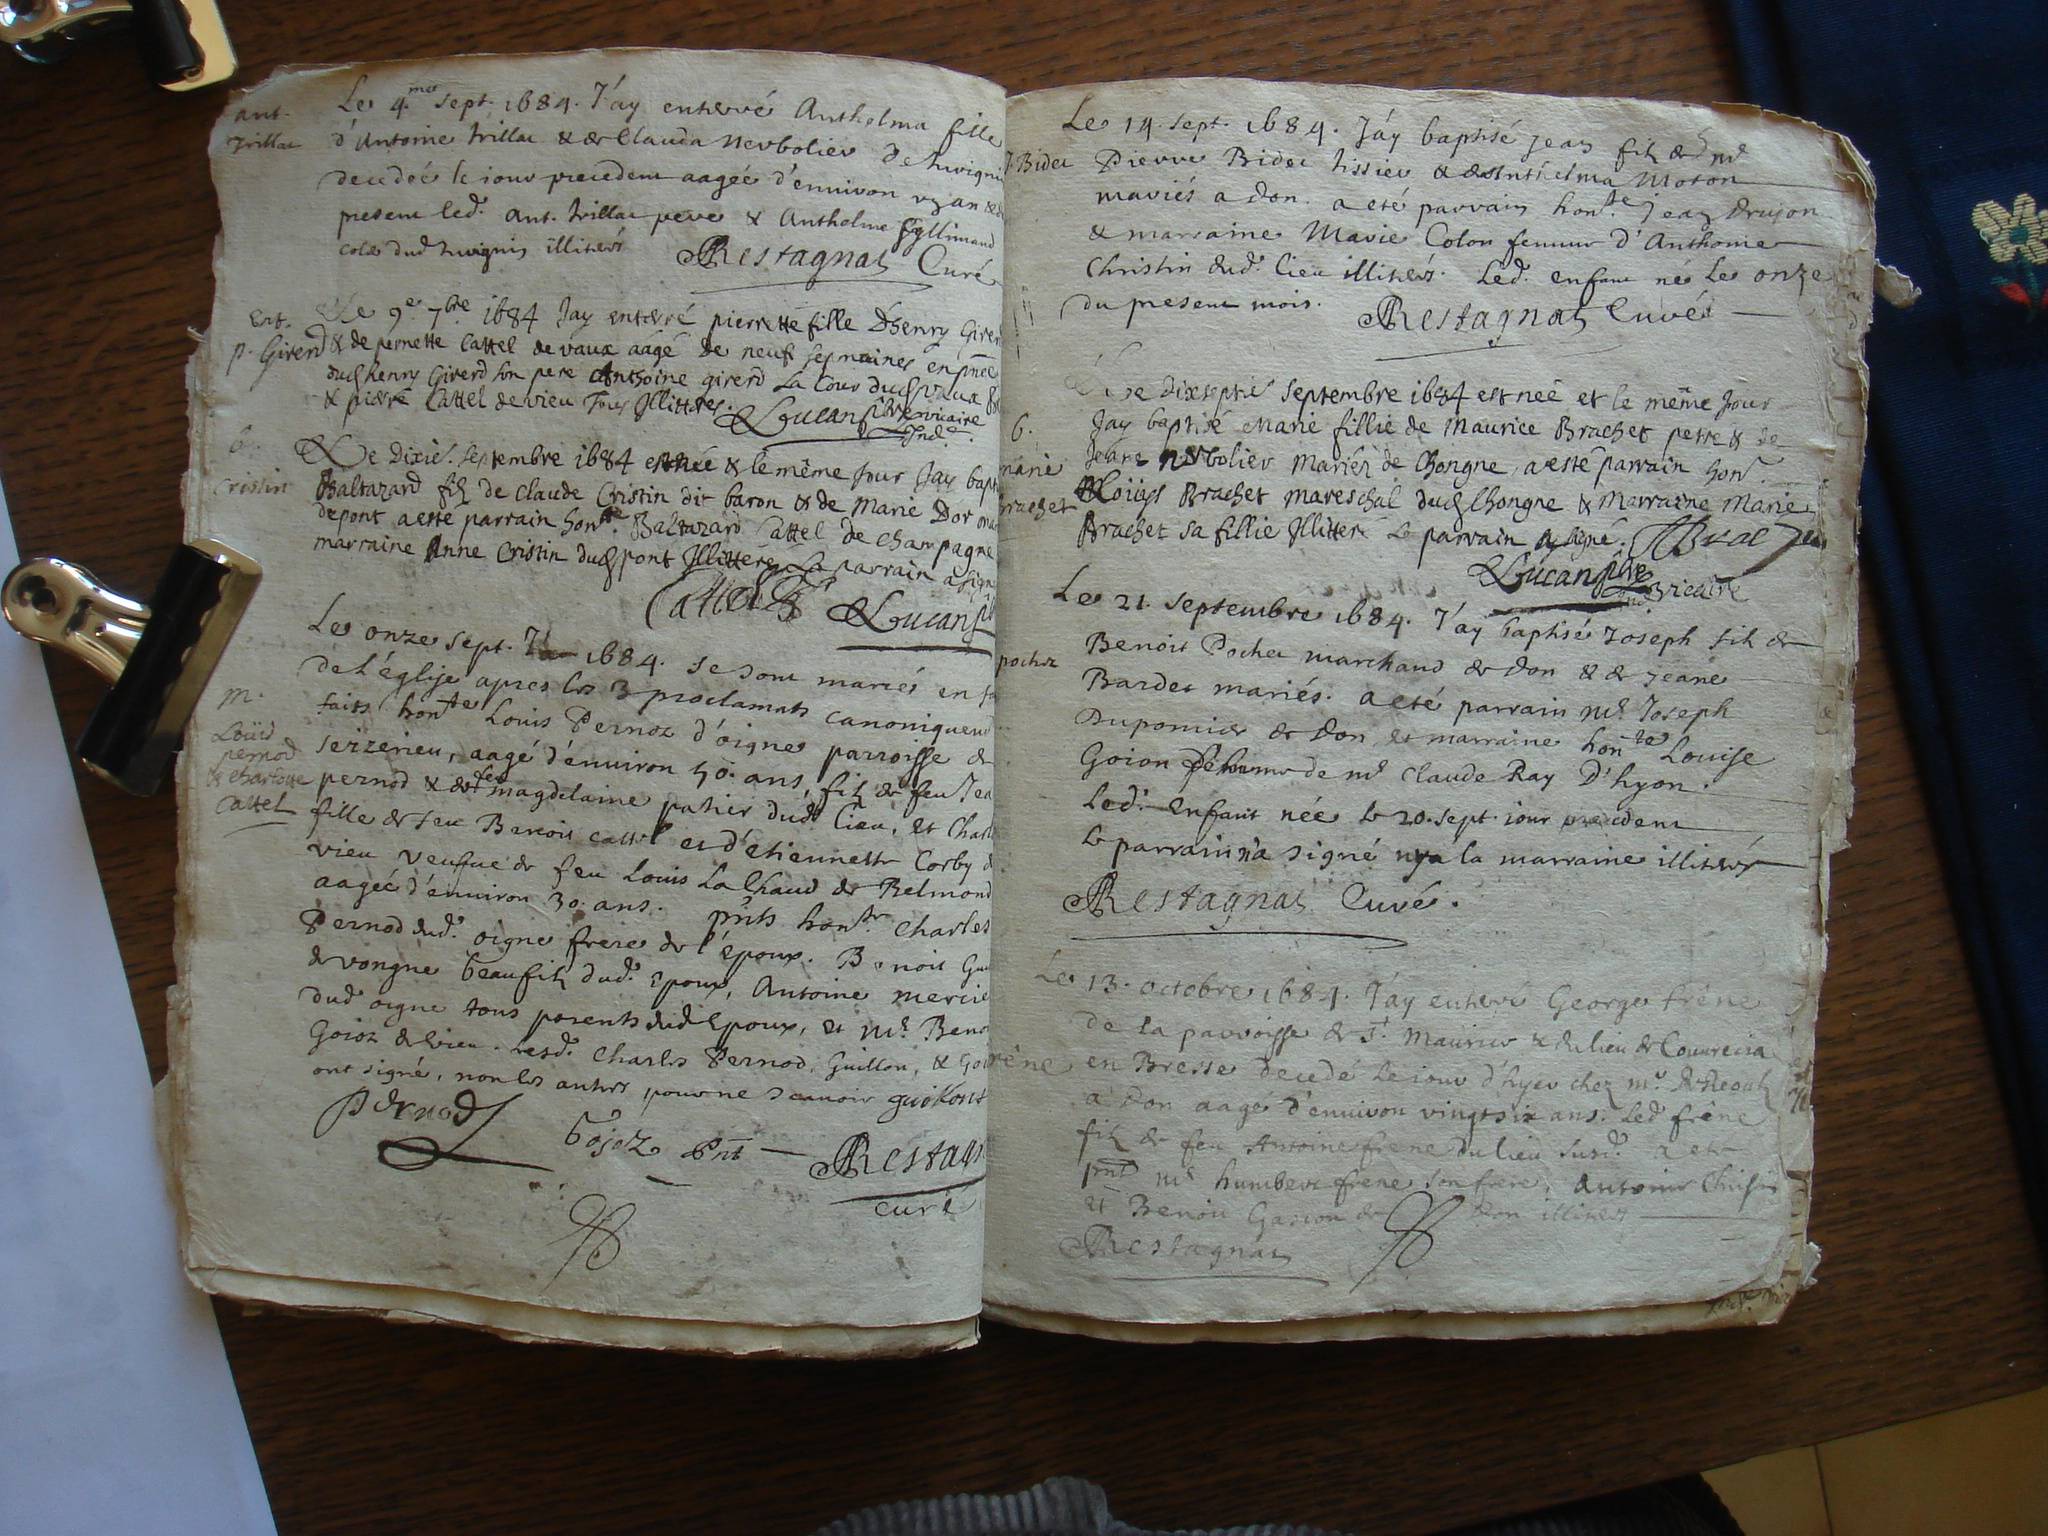 ant.
trillat
Le 4.me sept. 1684. J'ay enterré Anthelma fille
d'Antoine trillat & de Clauda Nerbolier de
decedée le jour precedent aagée d'environ & 
present led. Ant. trillat pere & Anthelme
dud illiterés Restagnat Curé
ent.
p. Girerd
Le 9e 7bre 1684 Jay enterré pierrette fille Dhenry Girer
& de pernette Cattel de vaux aagé de neuf sepmaines en pnce
dud henry Girerd son pere Anthoine girerd La Cour dud vaux
& pierre Cattel de vieu Tous Illitteres. Lucan pbre vicaire
Ind.
b.
Cristin
Le Dixie. septembre 1684 est née & le même Jour Jay bapt
Baltazard filz de Claude Cristin dit baron & de Marie Dor
depont a esté parrain hon.te Baltazard Cattel de Champagne
marraine Anne Cristin dud pont Illitteré Le parrain a sign
Cattel Lucan
m.
Loüis
pernod
& Charlotte
Cattel
Le onze sept. 1684. se sont mariés en fa
de l'église apres les 3 proclamats canoniquem
faits hon.te Louis Pernoz d'oigne parroisse de
seizerieu, aagé d'environ 50. ans, filz de feu Jea
pernod & de magdelaine patier dud. lieu, et Charl
fille de feu Benoit cattel et d'etiennette Corby d
vieu veufue de feu Louis La Chaud de Belmond
aagée d'environ 30. ans. pnts hon. Charles
Pernod dud. oigne frere de l'époux. Benoit Gui
de vongne beaufilz dud. Epoux, Antoine mercie
dud oigne tous parents dud Epoux, et Mr. Beno
Goioz de vieu. Lesd. Charles Pernod, Guillon, & Goi
ont signé, non les autres pour ne scavoir guillont
Pernod
Gojoz pnt Restagn
curé
J. Bidet
Le 14. sept. 1684. J'ay baptisé Jean filz de
Pierre Bidet tissier & d'Antelma Moton
mariés a Don. a eté parrain hon.te Jean Drujon
& marraine Marie Colon femme d'Anthoine
Christin dud. lieu illiterés. Led. enfant né Le onze
du present mois. Restagnat Curé
b.
marie
brachet
Le Dixseptie Septembre 1684 est née et le même Jour
Jay baptisé Marie fillie de Maurice Brachet & de
Jeane Nerbolier Mariéz de Chongne, a esté parrain hon.
Loüys Brachet Mareschal dud Chongne & Marraine Marie
Brachet sa fillie Illitteré Le parrain a signé.
Lucan pbre
vicaire
pochet
Le 21. Septembre 1684. J'ay baptisé Joseph filz de
Benoit Pochet marchand de Don & de Jeane
Bardet mariés. a eté parrain Mr. Joseph
Dupomier de Don et marraine hon.te Louise
Goion femme de Mr Claude Ray D'hyon.
Led. Enfant née le 20. sept. jour precedent
Le parrain a signé la marraine illiteré
Restagnat Curé.
frêne
Le 13. octobre 1684. J'ay enterré George frêne
de la parroisse de St. Maurice & du lieu de
en Bresse decedé le jour d'hyer chez Mr.
a Don aagé d'environ vingt six ans. Led. frêne
filz de feu Antoine frene du lieu susd. a eté
pnt Mr humbert frene son frere, Antoine Christin
et Benoit Gasion de Don illiterés
Restagnat